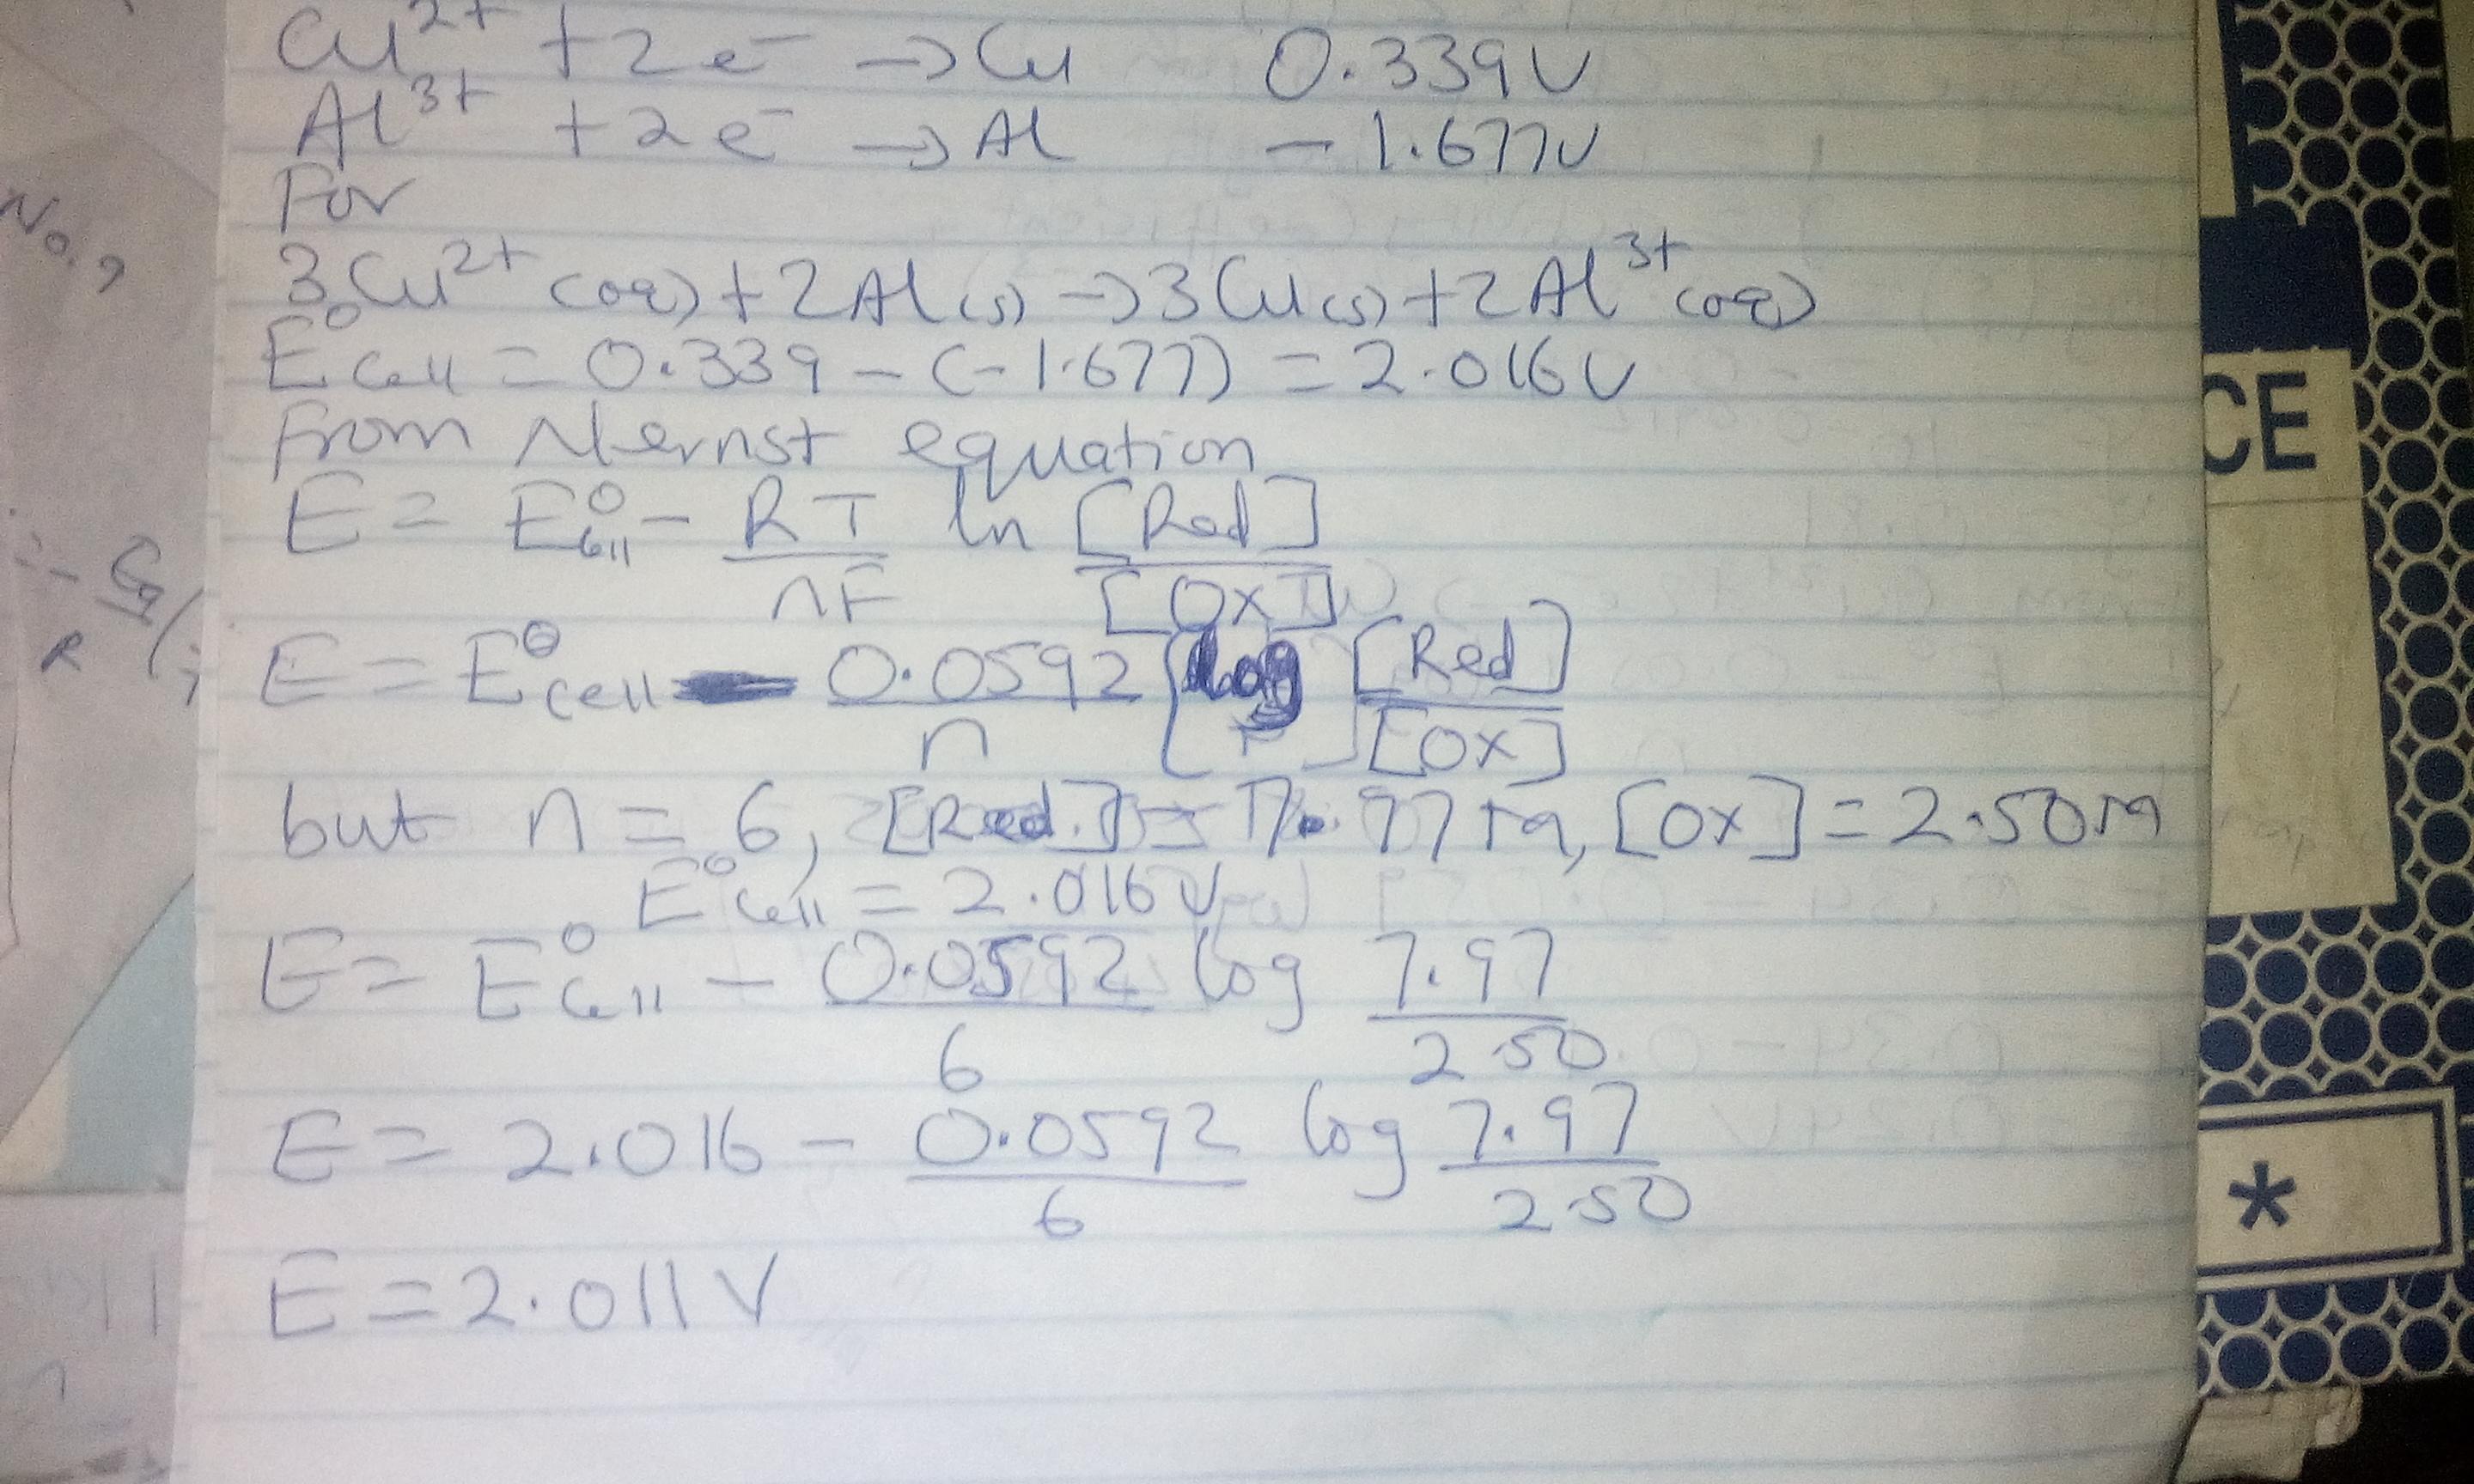 Cu²⁺ + 2e⁻ → Cu 0.339V
Al³⁺ + 2e⁻ → Al - 1.677V
For
3Cu²⁺(aq) + 2Al(s) → 3Cu(s) + 2Al³⁺(aq)
E⁰cell = 0.339 - (-1.677) = 2.016V
From Nernst equation
E = E⁰cell - RT/nF ln [Red]/[Ox]
E = E⁰cell - 0.0592/n log [Red]/[Ox]
but n = 6, [Red] = 7.97M, [Ox] = 2.50M
E⁰cell = 2.016V
E = E⁰cell - 0.0592/6 log 7.97/2.50
E = 2.016 - 0.0592/6 log 7.97/2.50
E = 2.011V
No.
CE
*